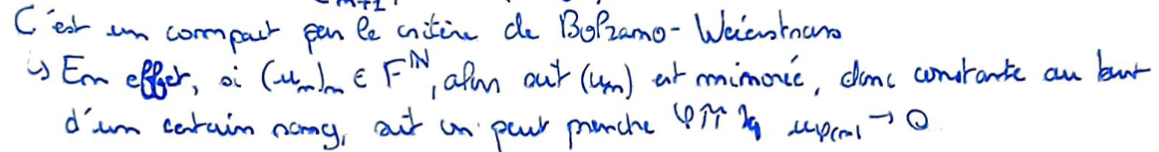 C'est un compact par le critère de Bolzano-Weierstrass
↳ En effet, si (u_n)_n ∈ F^ℕ, alors soit (u_n) est minorée, donc constante au bout
d'un certain rang, soit on peut prendre φ↗↗ tq u_φ(n) → 0